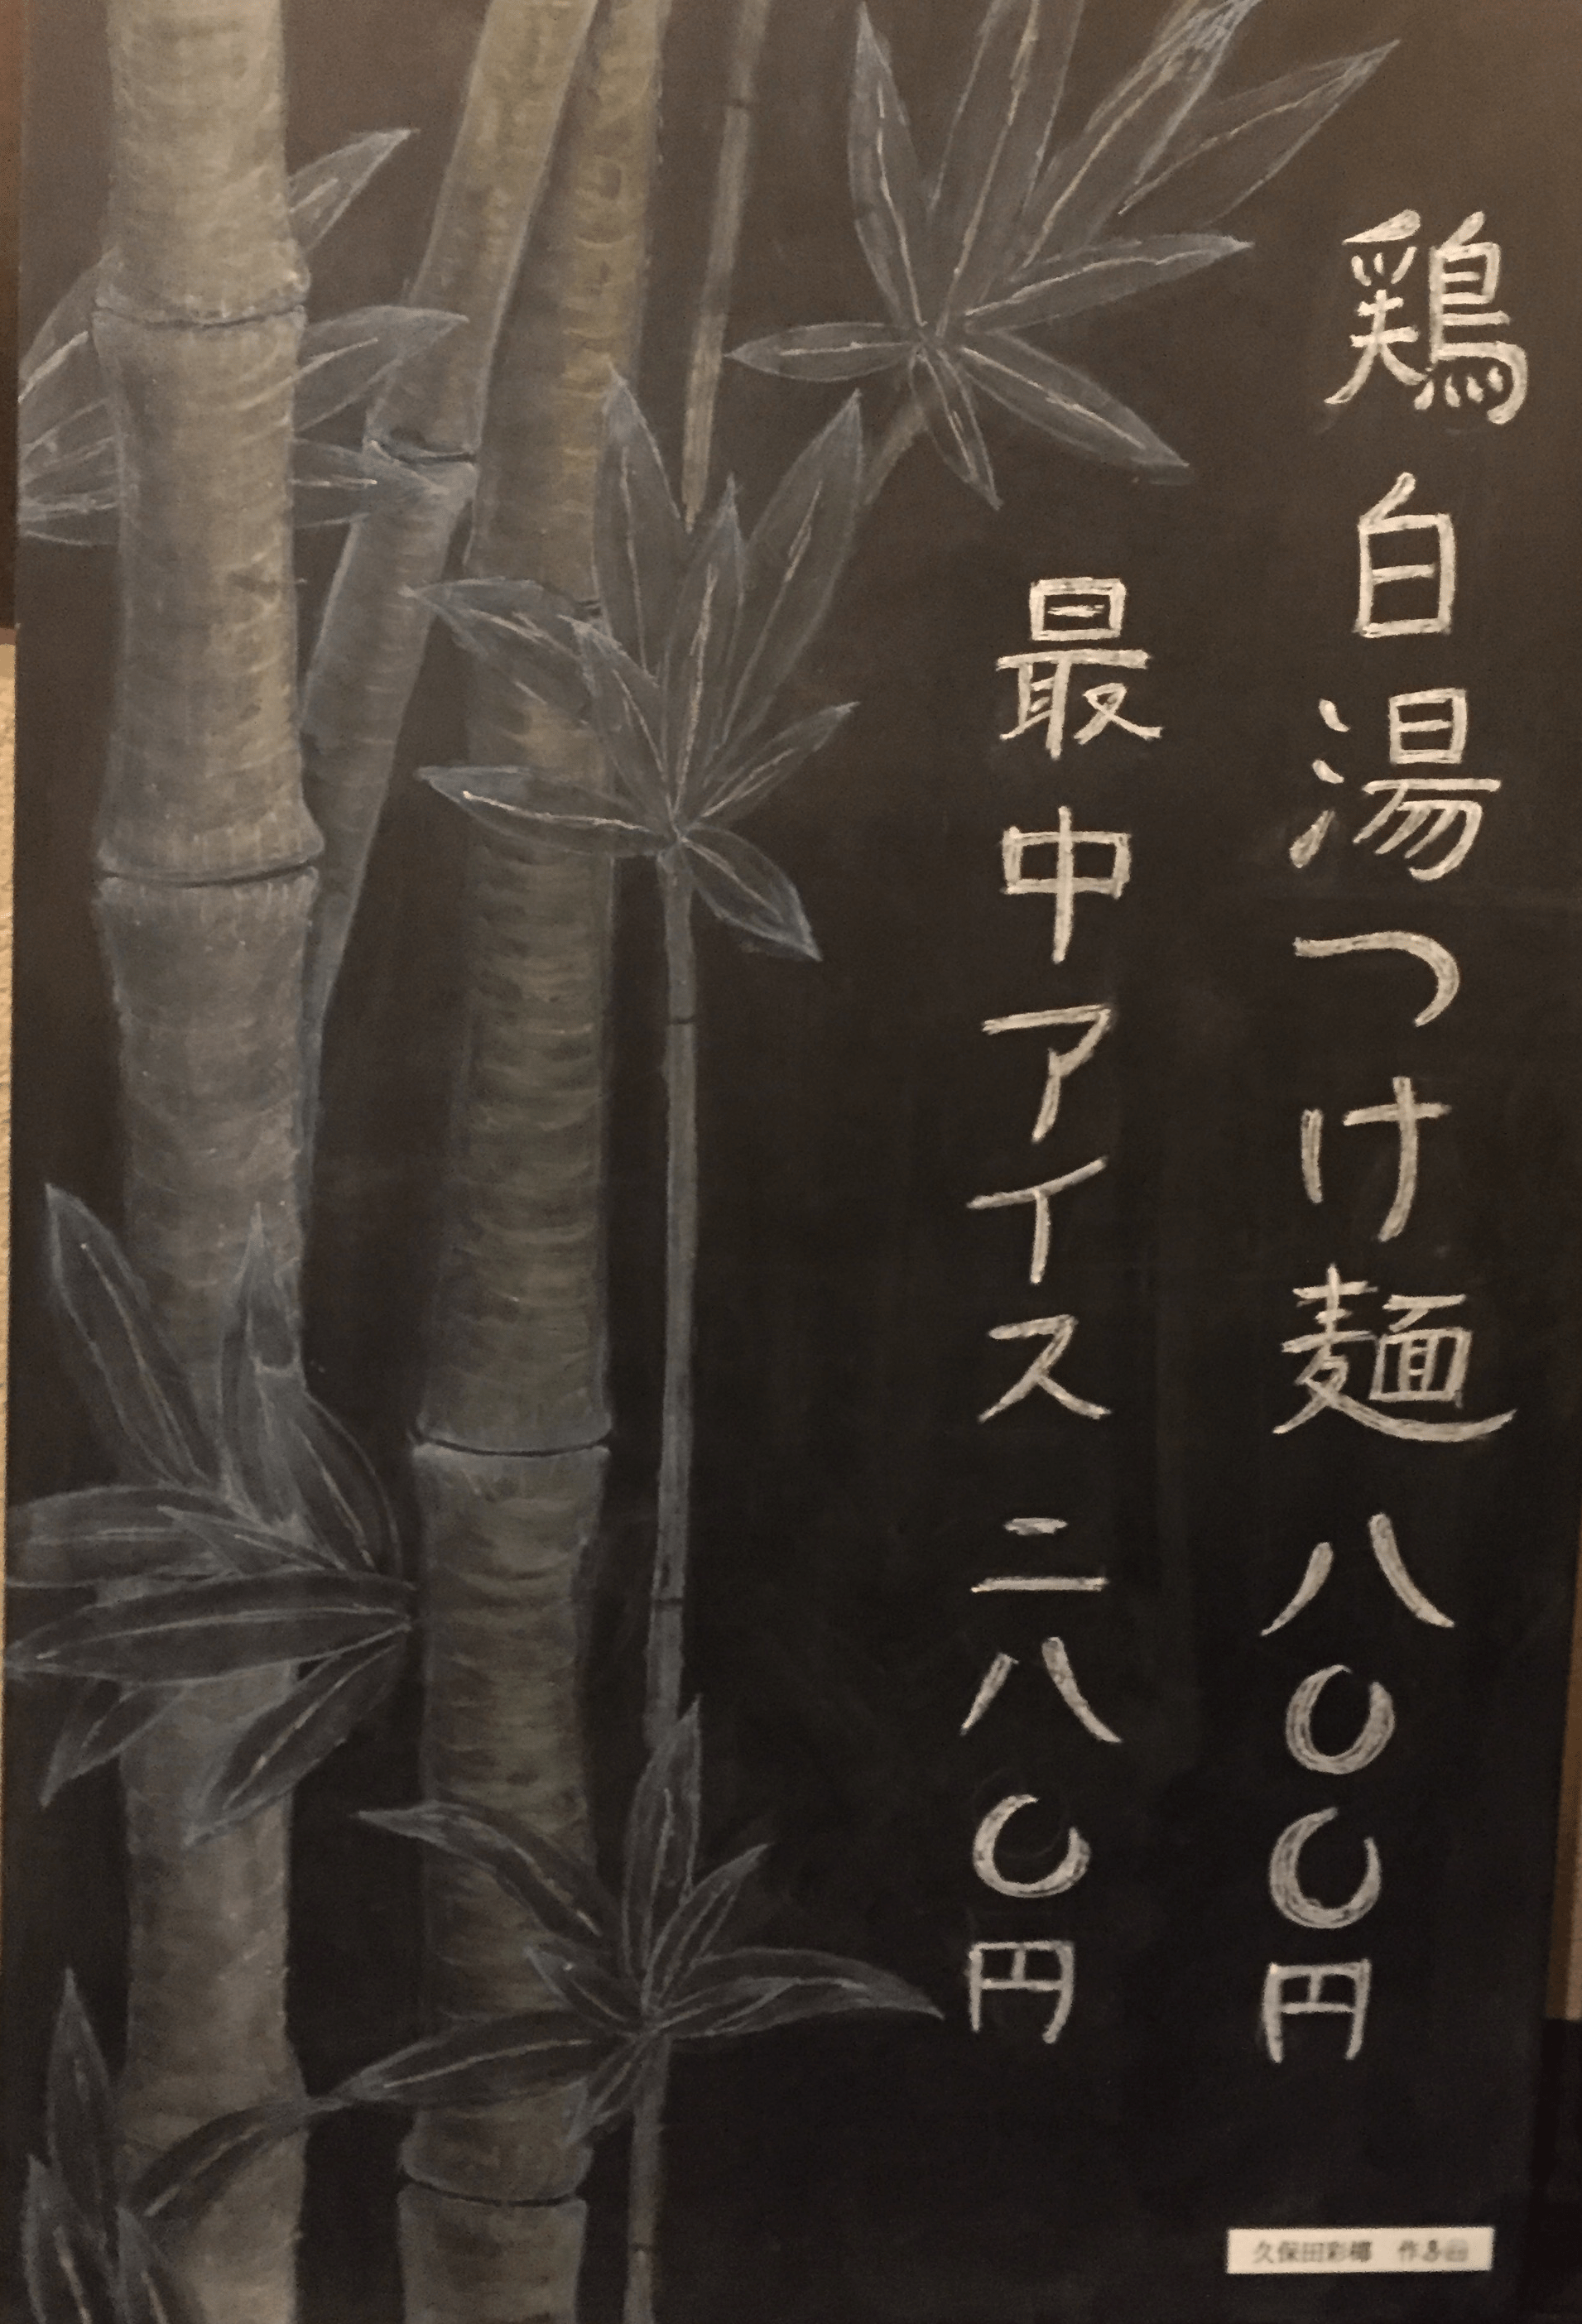 鶏白湯つけ麺八〇〇円
最中アイス二八〇円
久保田彩 作